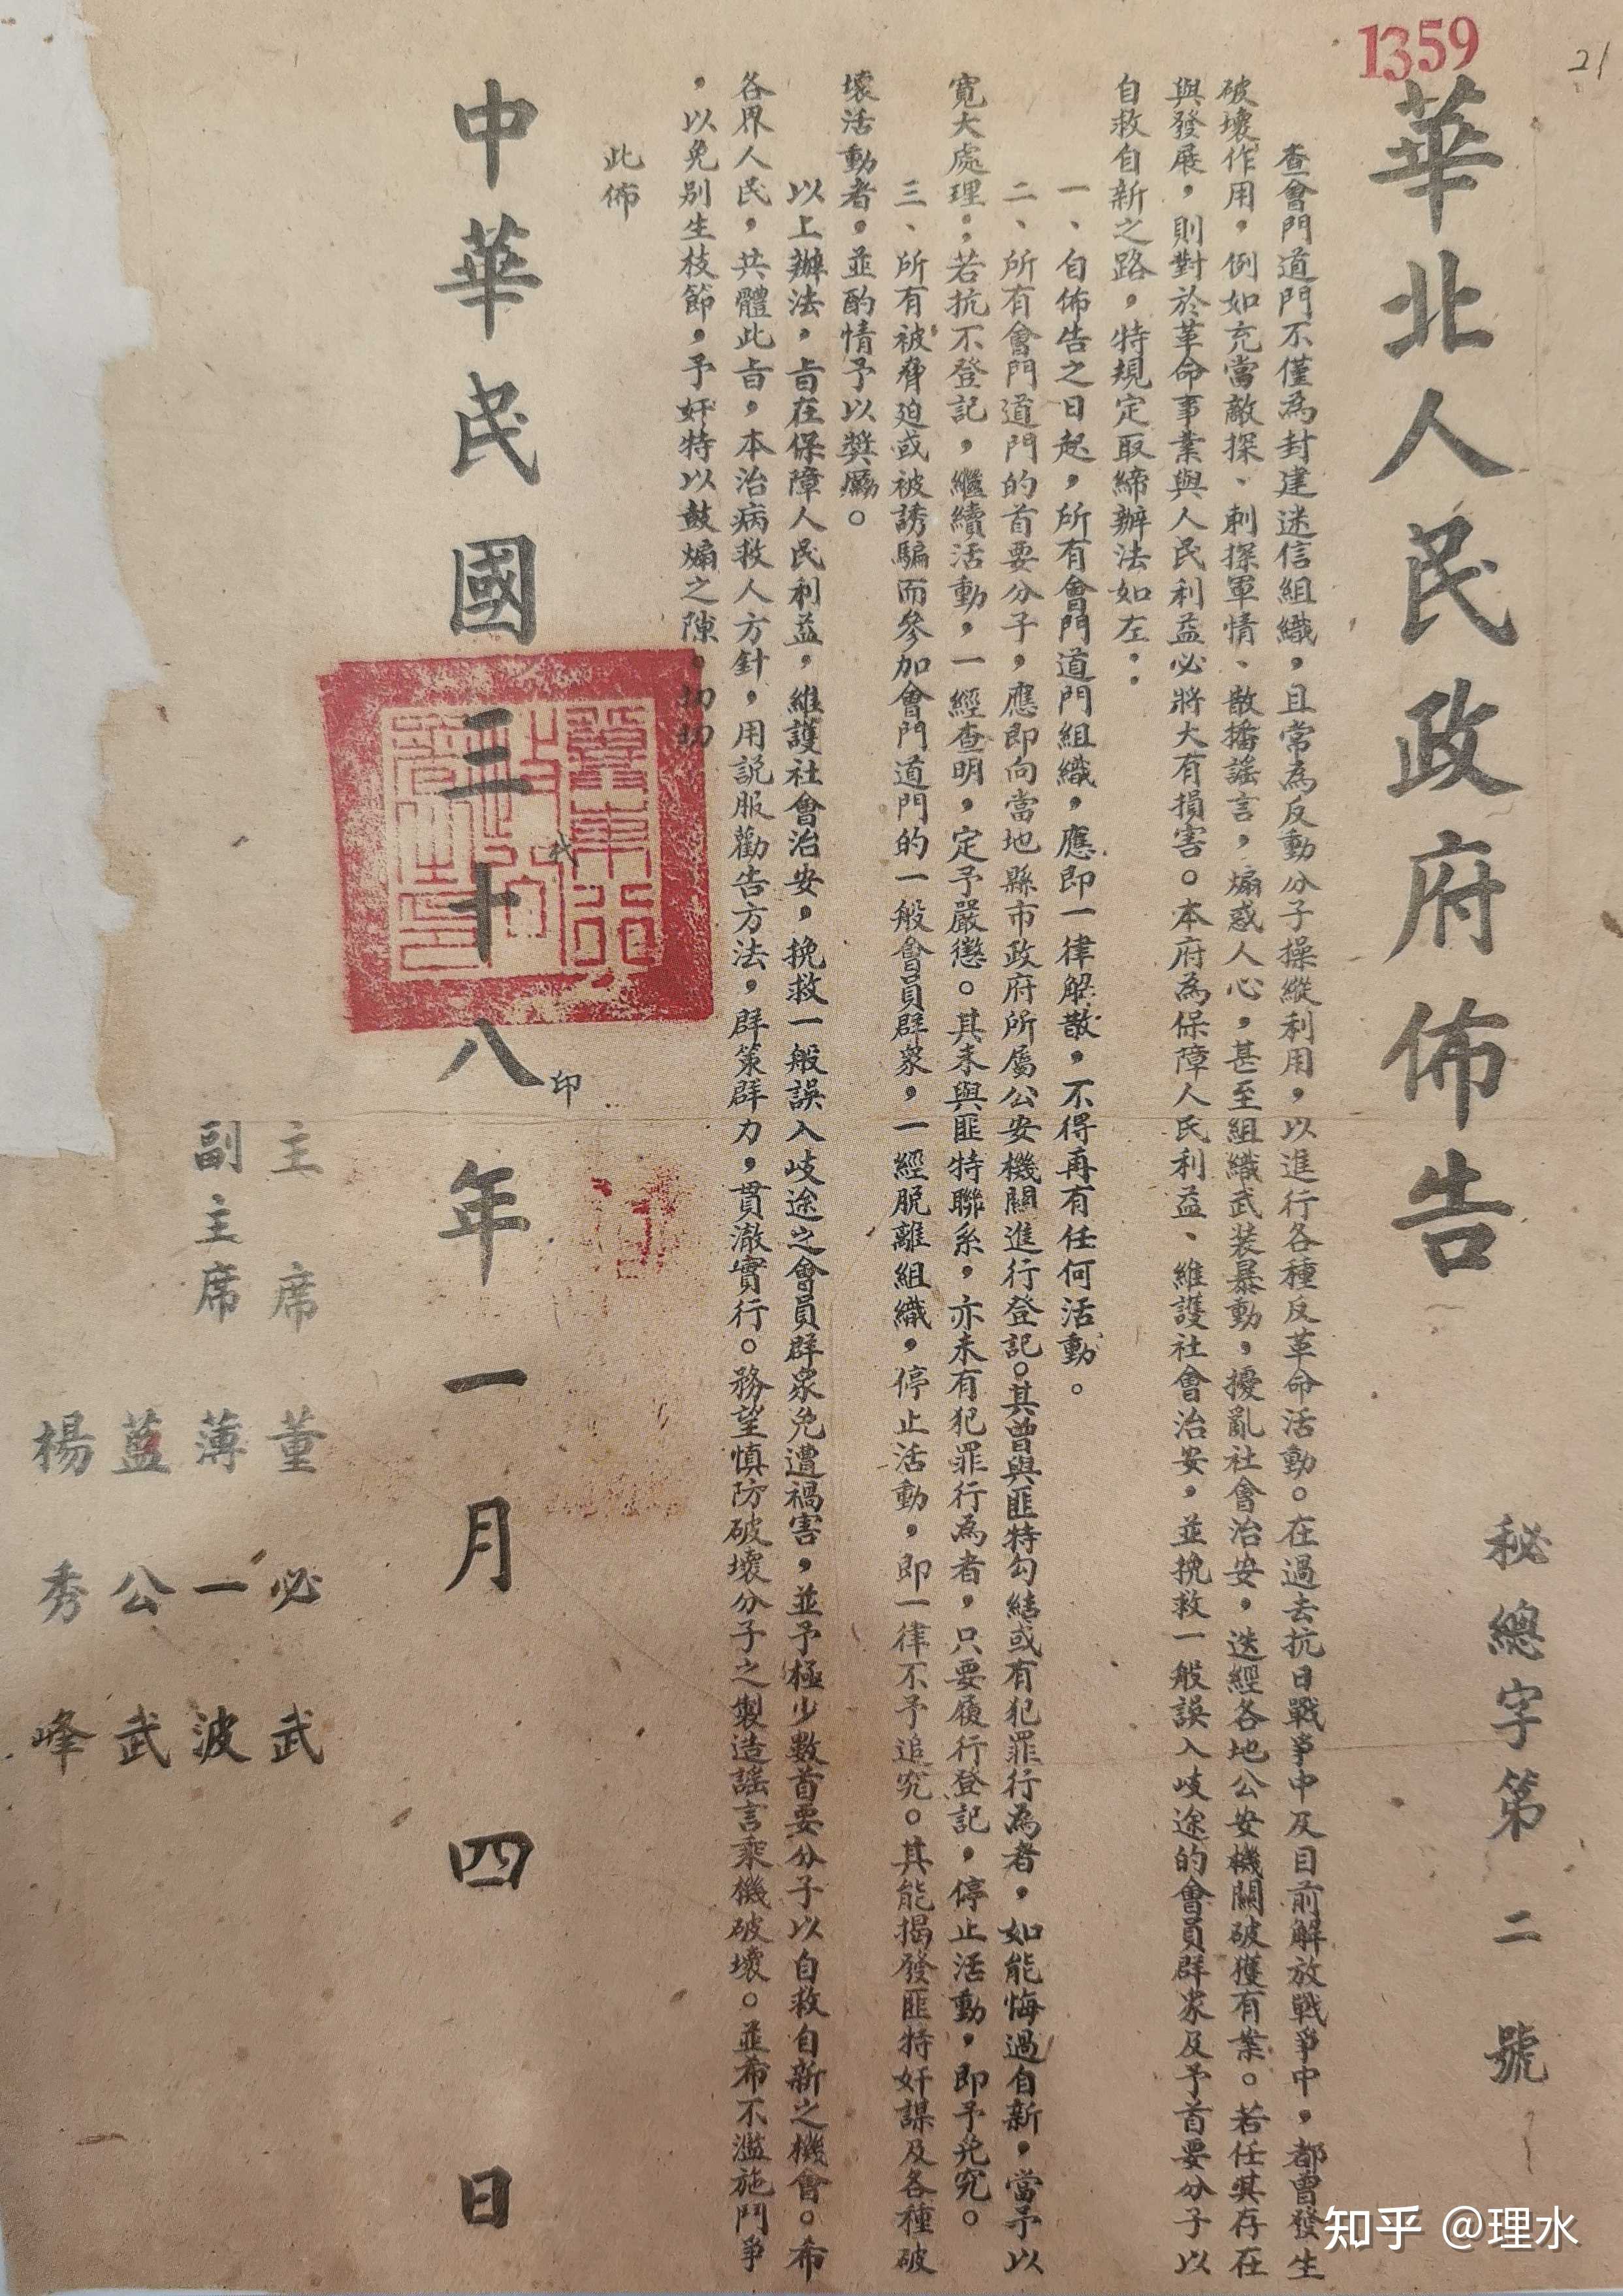 1359
21
華北人民政府佈告
秘總字第二號
查會門道門不僅為封建迷信組織，且常為反動分子操縱利用，以進行各種反革命活動。在過去抗日戰爭中及目前解放戰爭中，都曾發生
破壞作用，例如充當敵探、刺探軍情、散播謠言，煽惑人心，甚至組織武裝暴動，擾亂社會治安，迭經各地公安機關破獲有案。若任其存在
與發展，則對於革命事業與人民利益必將大有損害。本府為保障人民利益、維護社會治安，並挽救一般誤入歧途的會員群衆及予首要分子以
自救自新之路，特規定取締辦法如左：
一、自佈告之日起，所有會門道門組織，應即一律解散，不得再有任何活動。
二、所有會門道門的首要分子，應即向當地縣市政府所屬公安機關進行登記。其曾與匪特勾結或有犯罪行為者，如能悔過自新，當予以
寬大處理；若抗不登記，繼續活動，一經查明，定予嚴懲。其未與匪特聯系，亦未有犯罪行為者，只要履行登記，停止活動，即予免究。
三、所有被脅迫或被誘騙而參加會門道門的一般會員群衆，一經脫離組織，停止活動，即一律不予追究。其能揭發匪特奸謀及各種破
壞活動者，並酌情予以獎勵。
以上辦法，旨在保障人民利益，維護社會治安，挽救一般誤入歧途之會員群衆免遭禍害，並予極少數首要分子以自救自新之機會。希
各界人民，共體此旨，本治病救人方針，用說服勸告方法，群策群力，貫澈實行。務望慎防破壞分子之製造謠言乘機破壞。並希不濫施鬥爭
，以免別生枝節，予奸特以鼓煽之隙。切切
此佈
中華民國三十八年一月四日
印
主席 董必武
副主席 薄一波
藍公武
楊秀峰
知乎 @理水